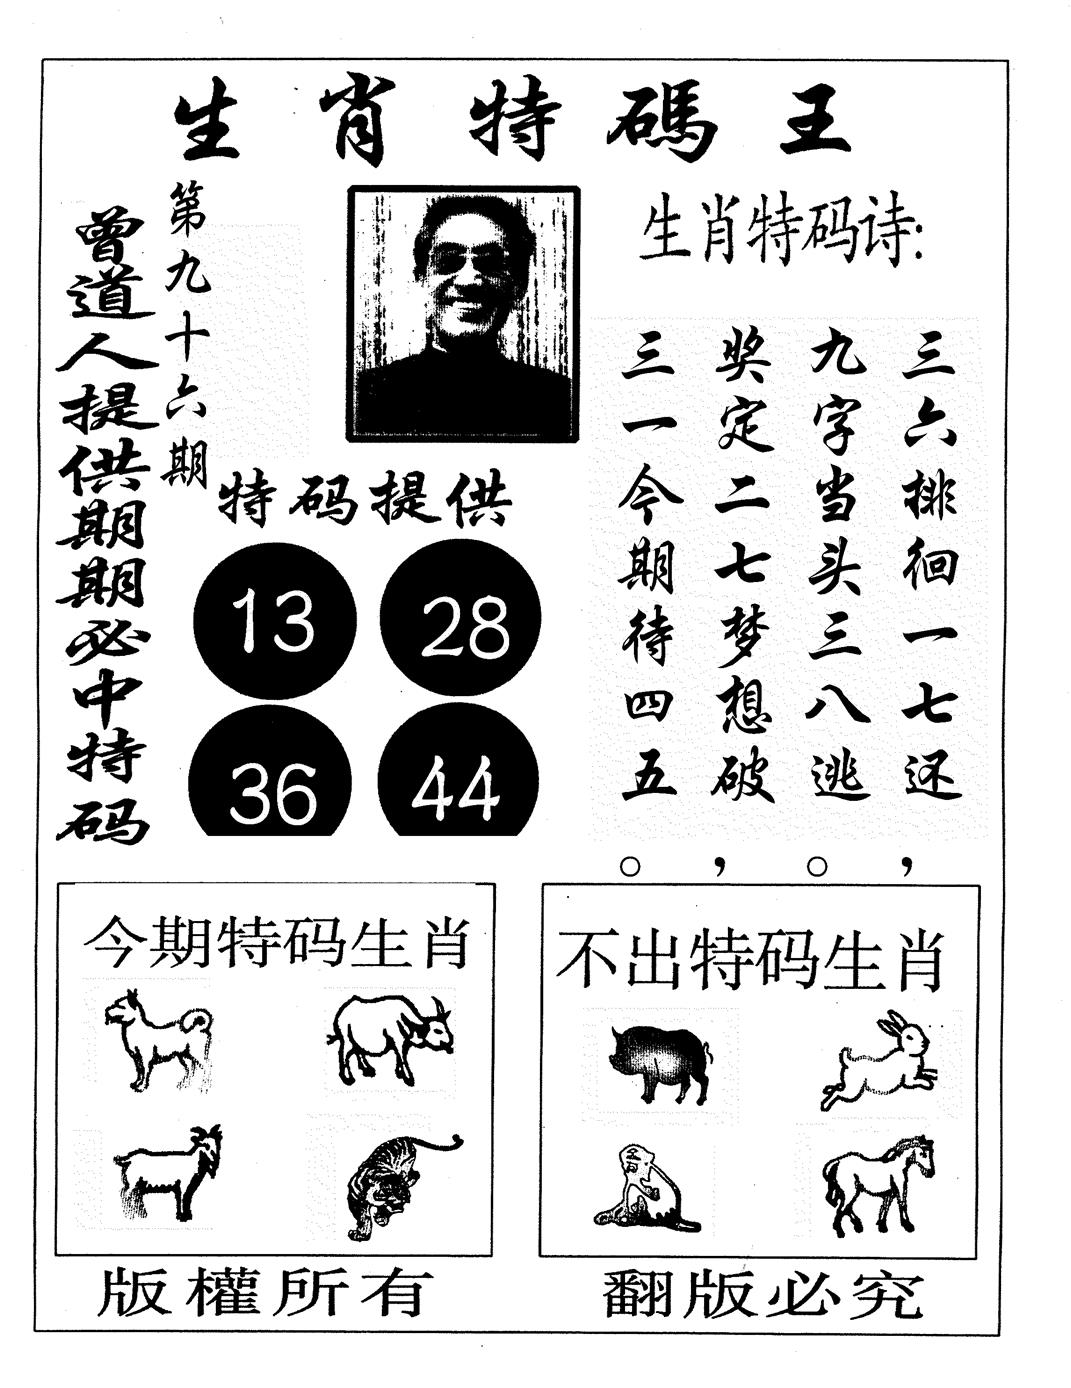 生肖特碼王
第九十六期
曾道人提供期期必中特码
生肖特码诗:
三六排徊一七还，
九字当头三八逃。
奖定二七梦想破，
三一今期待四五。
特码提供
13 28
36 44
今期特码生肖
不出特码生肖
版權所有
翻版必究